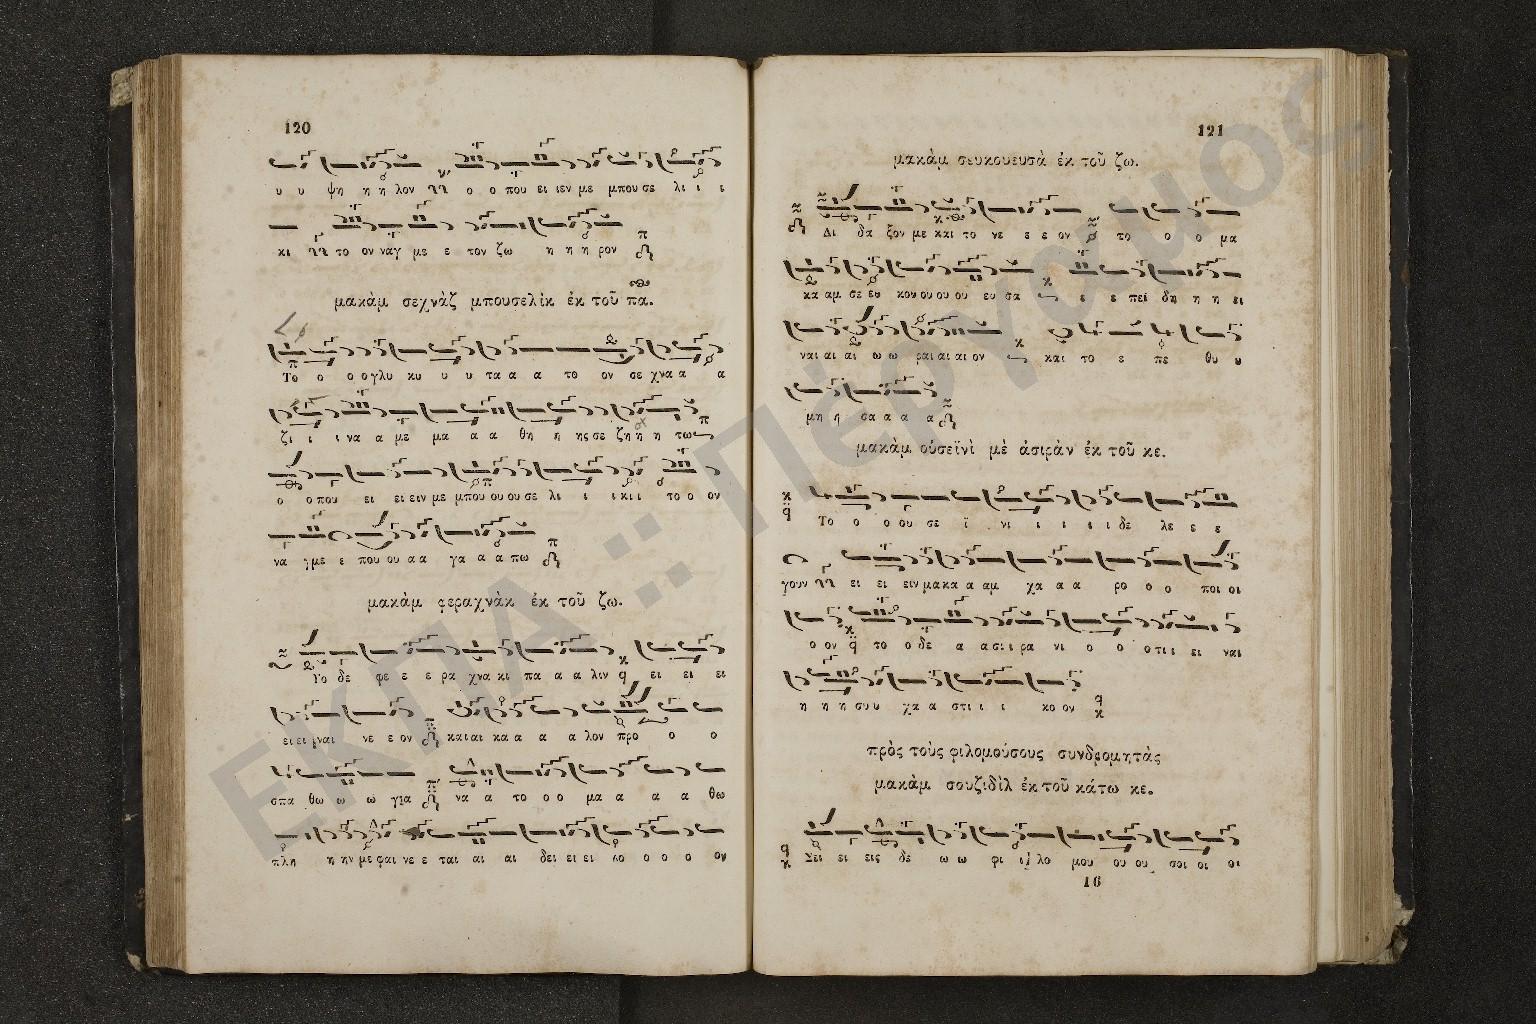 120
υ υ ψη η η λον ο ο που ει ιεν με μπου σε λι ι ι
κι το ον ναγ με ε τον ζω η η η ρον
μακὰμ σεχνὰζ μπουσελὶκ ἐκ τοῦ πα.
Το ο ο ο γλυ κυ υ υ τα α α το ον σε χνα α α
ζι ι ι να α με μα α α θη η ης σε ζη η η τω
ο ο που ει ει ειν με μπου ου ου σε λι ι ι κι ι το ο ον
να γμε ε που ου α α γα α α πω
μακὰμ φεραχνὰκ ἐκ τοῦ ζω.
Το δε φε ε ε ρα χνα κι πα α α λιν ει ει ει
ει ει ναι νε ε ον και αι κα α α α λον προ ο ο
σπα θω ω ω για να α το ο ο μα α α α θω
πλη η ην με φαι νε ε ται αι αι δει ει ει κο ο ο ο ον
121
μακὰμ σευκουευσὰ ἐκ τοῦ ζω.
Δι δα ξον με και το νε ε ε ον το ο ο μα
κα αμ σε ευ κου ου ου ου ευ σα ε ε πεί δη η η ει
ναι αι αι ω ω ραι αι αι ον και το ε πε θυ υ
μη η σα α α α
μακὰμ οὑσεϊνὶ μὲ ἀσιρὰν ἐκ τοῦ κε.
Το ο ο ου σε ϊ νι ι ι ι ι δε λε ε ε
γουν ει ει ειν μα κα α αμ χα α α ρο ο ο ποι οι
ο ον το ο δε α α σι ι ρα νι ο ο ο τι ι ει ναι
η η η συ υ χα α στι ι ι κο ον
πρὸς τοὺς φιλομούσους συνδρομητὰς
μακὰμ σουζιδὶλ ἐκ τοῦ κάτω κε.
Σει ει εις δε ω ω φι ι λο μου ου ου σοι οι οι
16
ΕΚΠΑ :: Πέργαμος